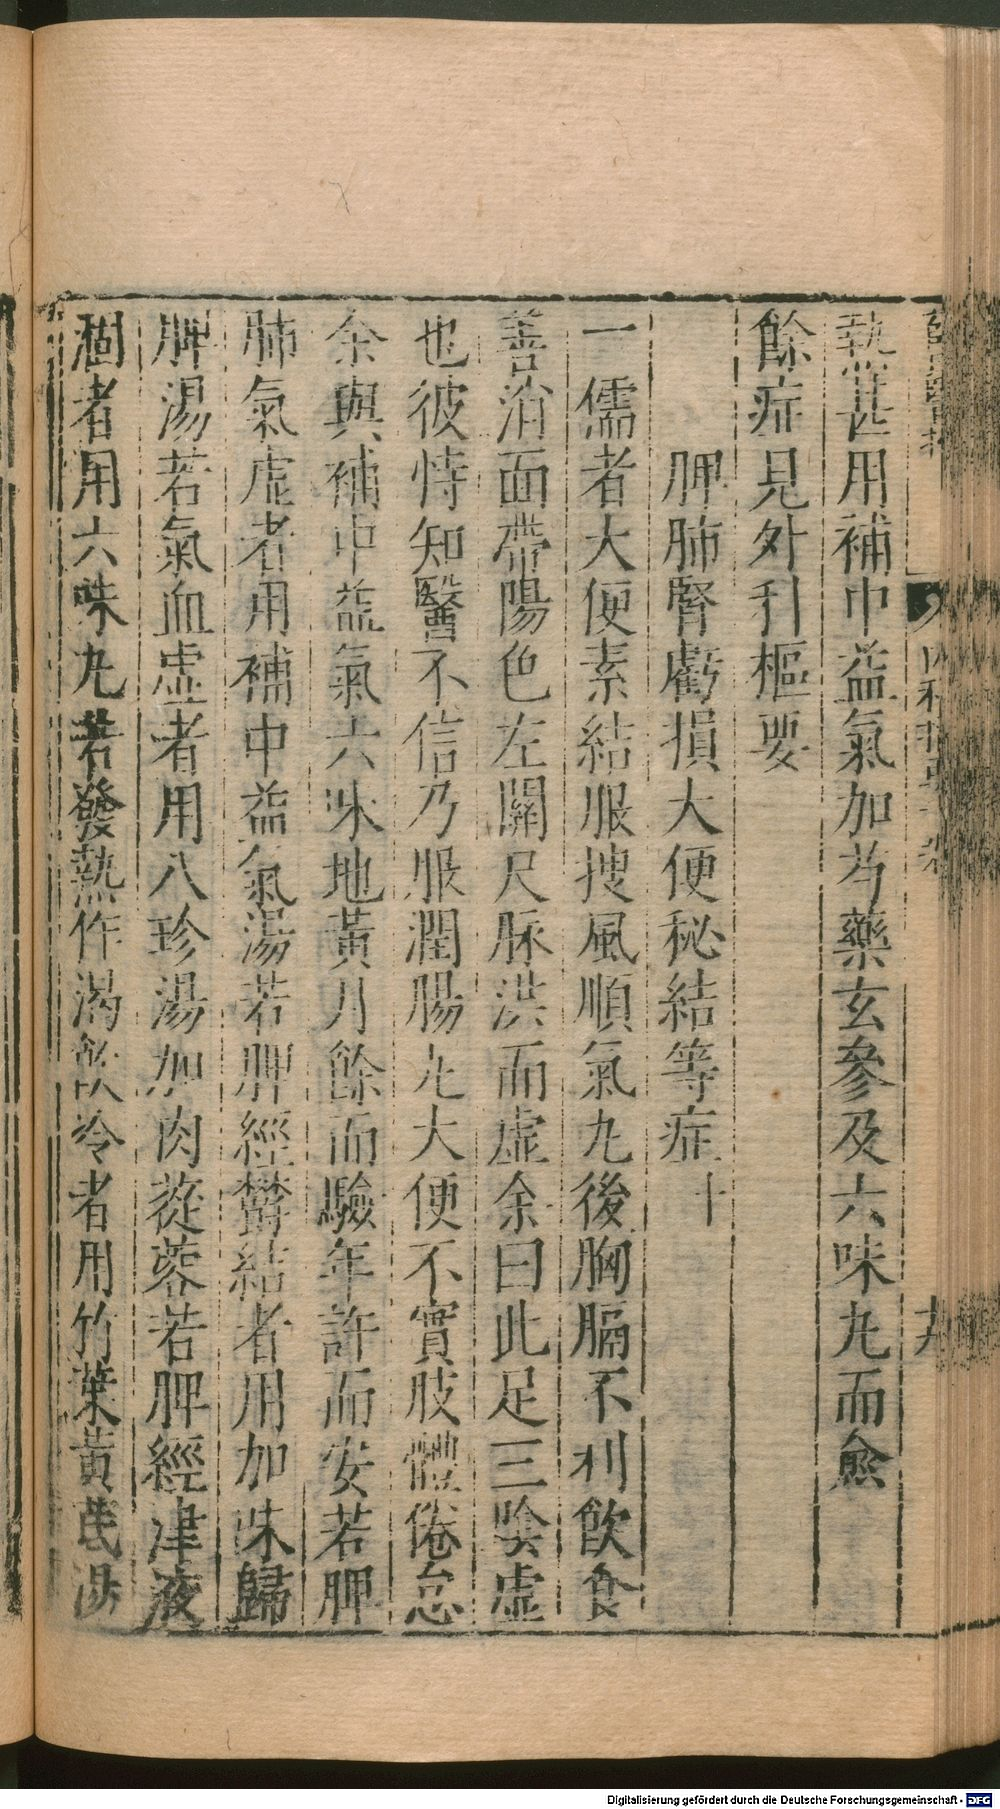 熱甚用補中益氣加芍藥玄參及六味丸而愈
餘症見外科樞要
脾肺腎虧損大便秘結等症十
一儒者大便素結服搜風順氣丸後胸膈不利飲食
善消面帶陽色左關尺脉洪而虛余曰此足三陰虛
也彼恃知醫不信乃服潤腸丸大便不實肢體倦怠
余與補中益氣六味地黃月餘而驗年許而安若脾
肺氣虛者用補中益氣湯若脾經鬱結者用加味歸
脾湯若氣血虛者用八珍湯加肉蓯蓉若脾經津液
涸者用六味丸若發熱作渴飲冷者用竹葉黃芪湯
內科摘要
Digitalisierung gefördert durch die Deutsche Forschungsgemeinschaft - DFG